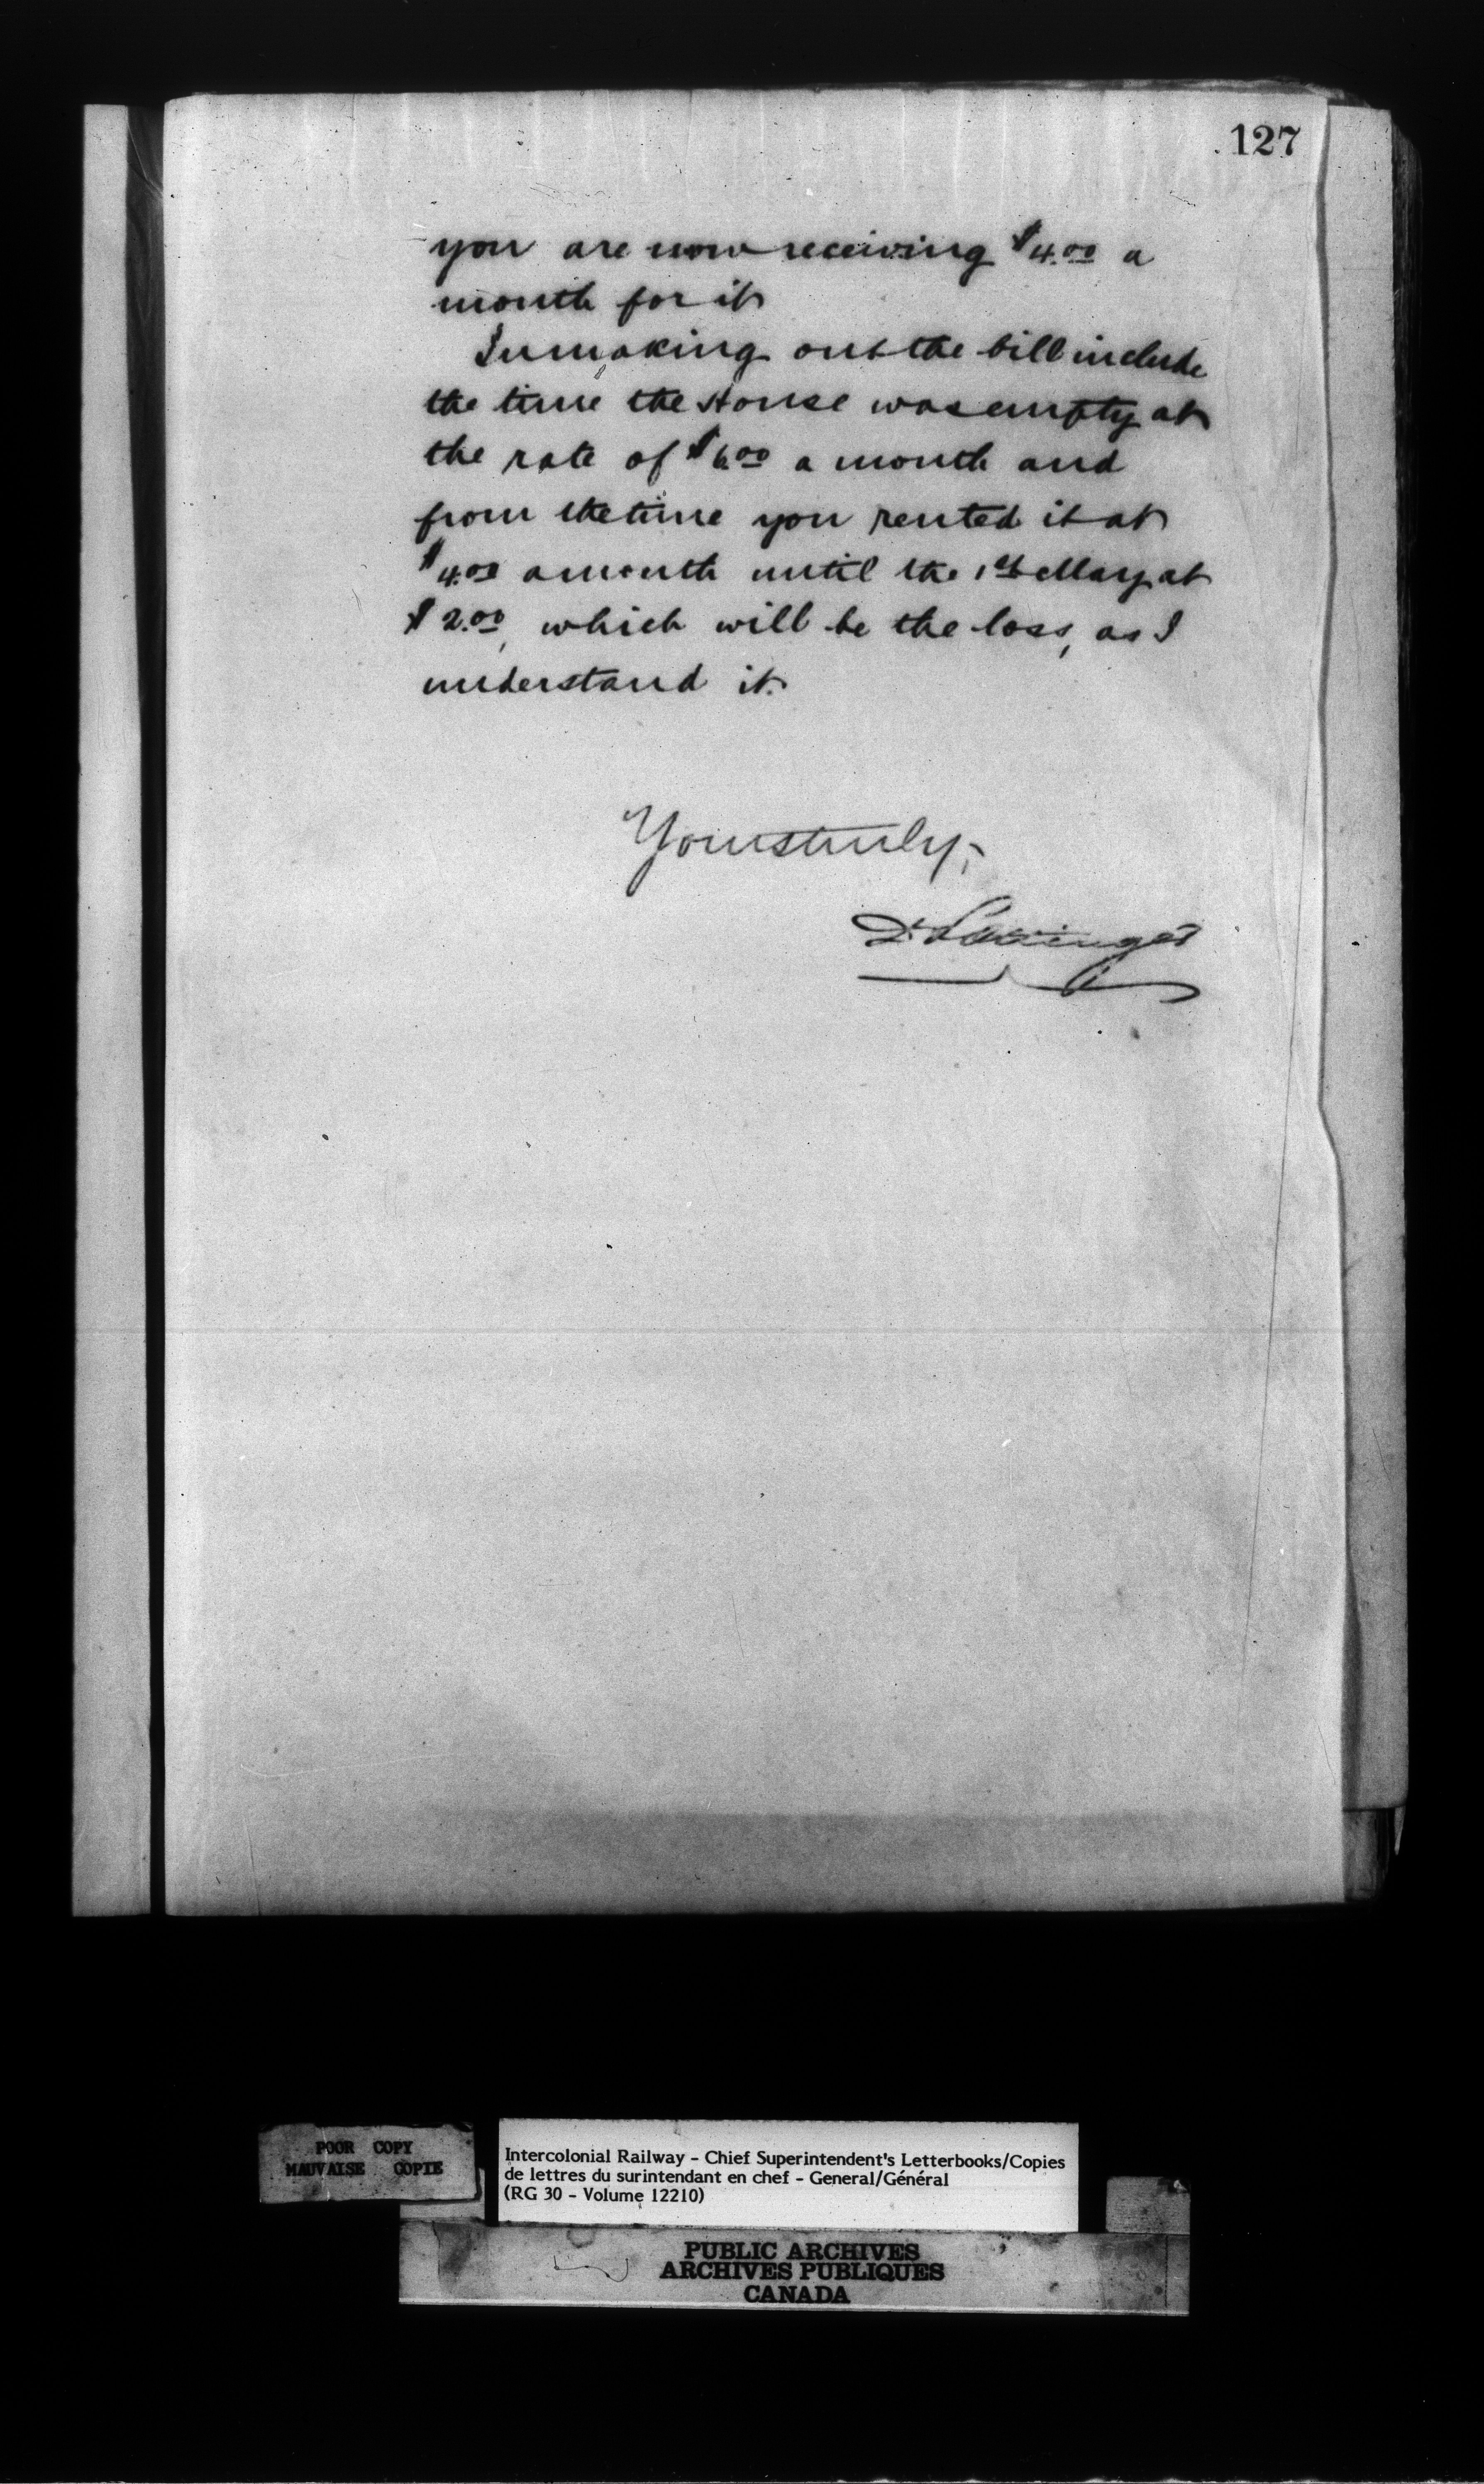 127
you are now receiving $4.00 a
month for it
In making out the bill include
the time the House was empty at
the rate of $6.00 a month and
from the time you rented it at
$4.00 a month until the 1st May at
$2.00, which will be the loss, as I
understand it.
Yours truly,
D. Pottinger
POOR COPY
MAUVAISE COPIE
Intercolonial Railway - Chief Superintendent's Letterbooks/Copies
de lettres du surintendant en chef - General/Général
(RG 30 - Volume 12210)
PUBLIC ARCHIVES
ARCHIVES PUBLIQUES
CANADA